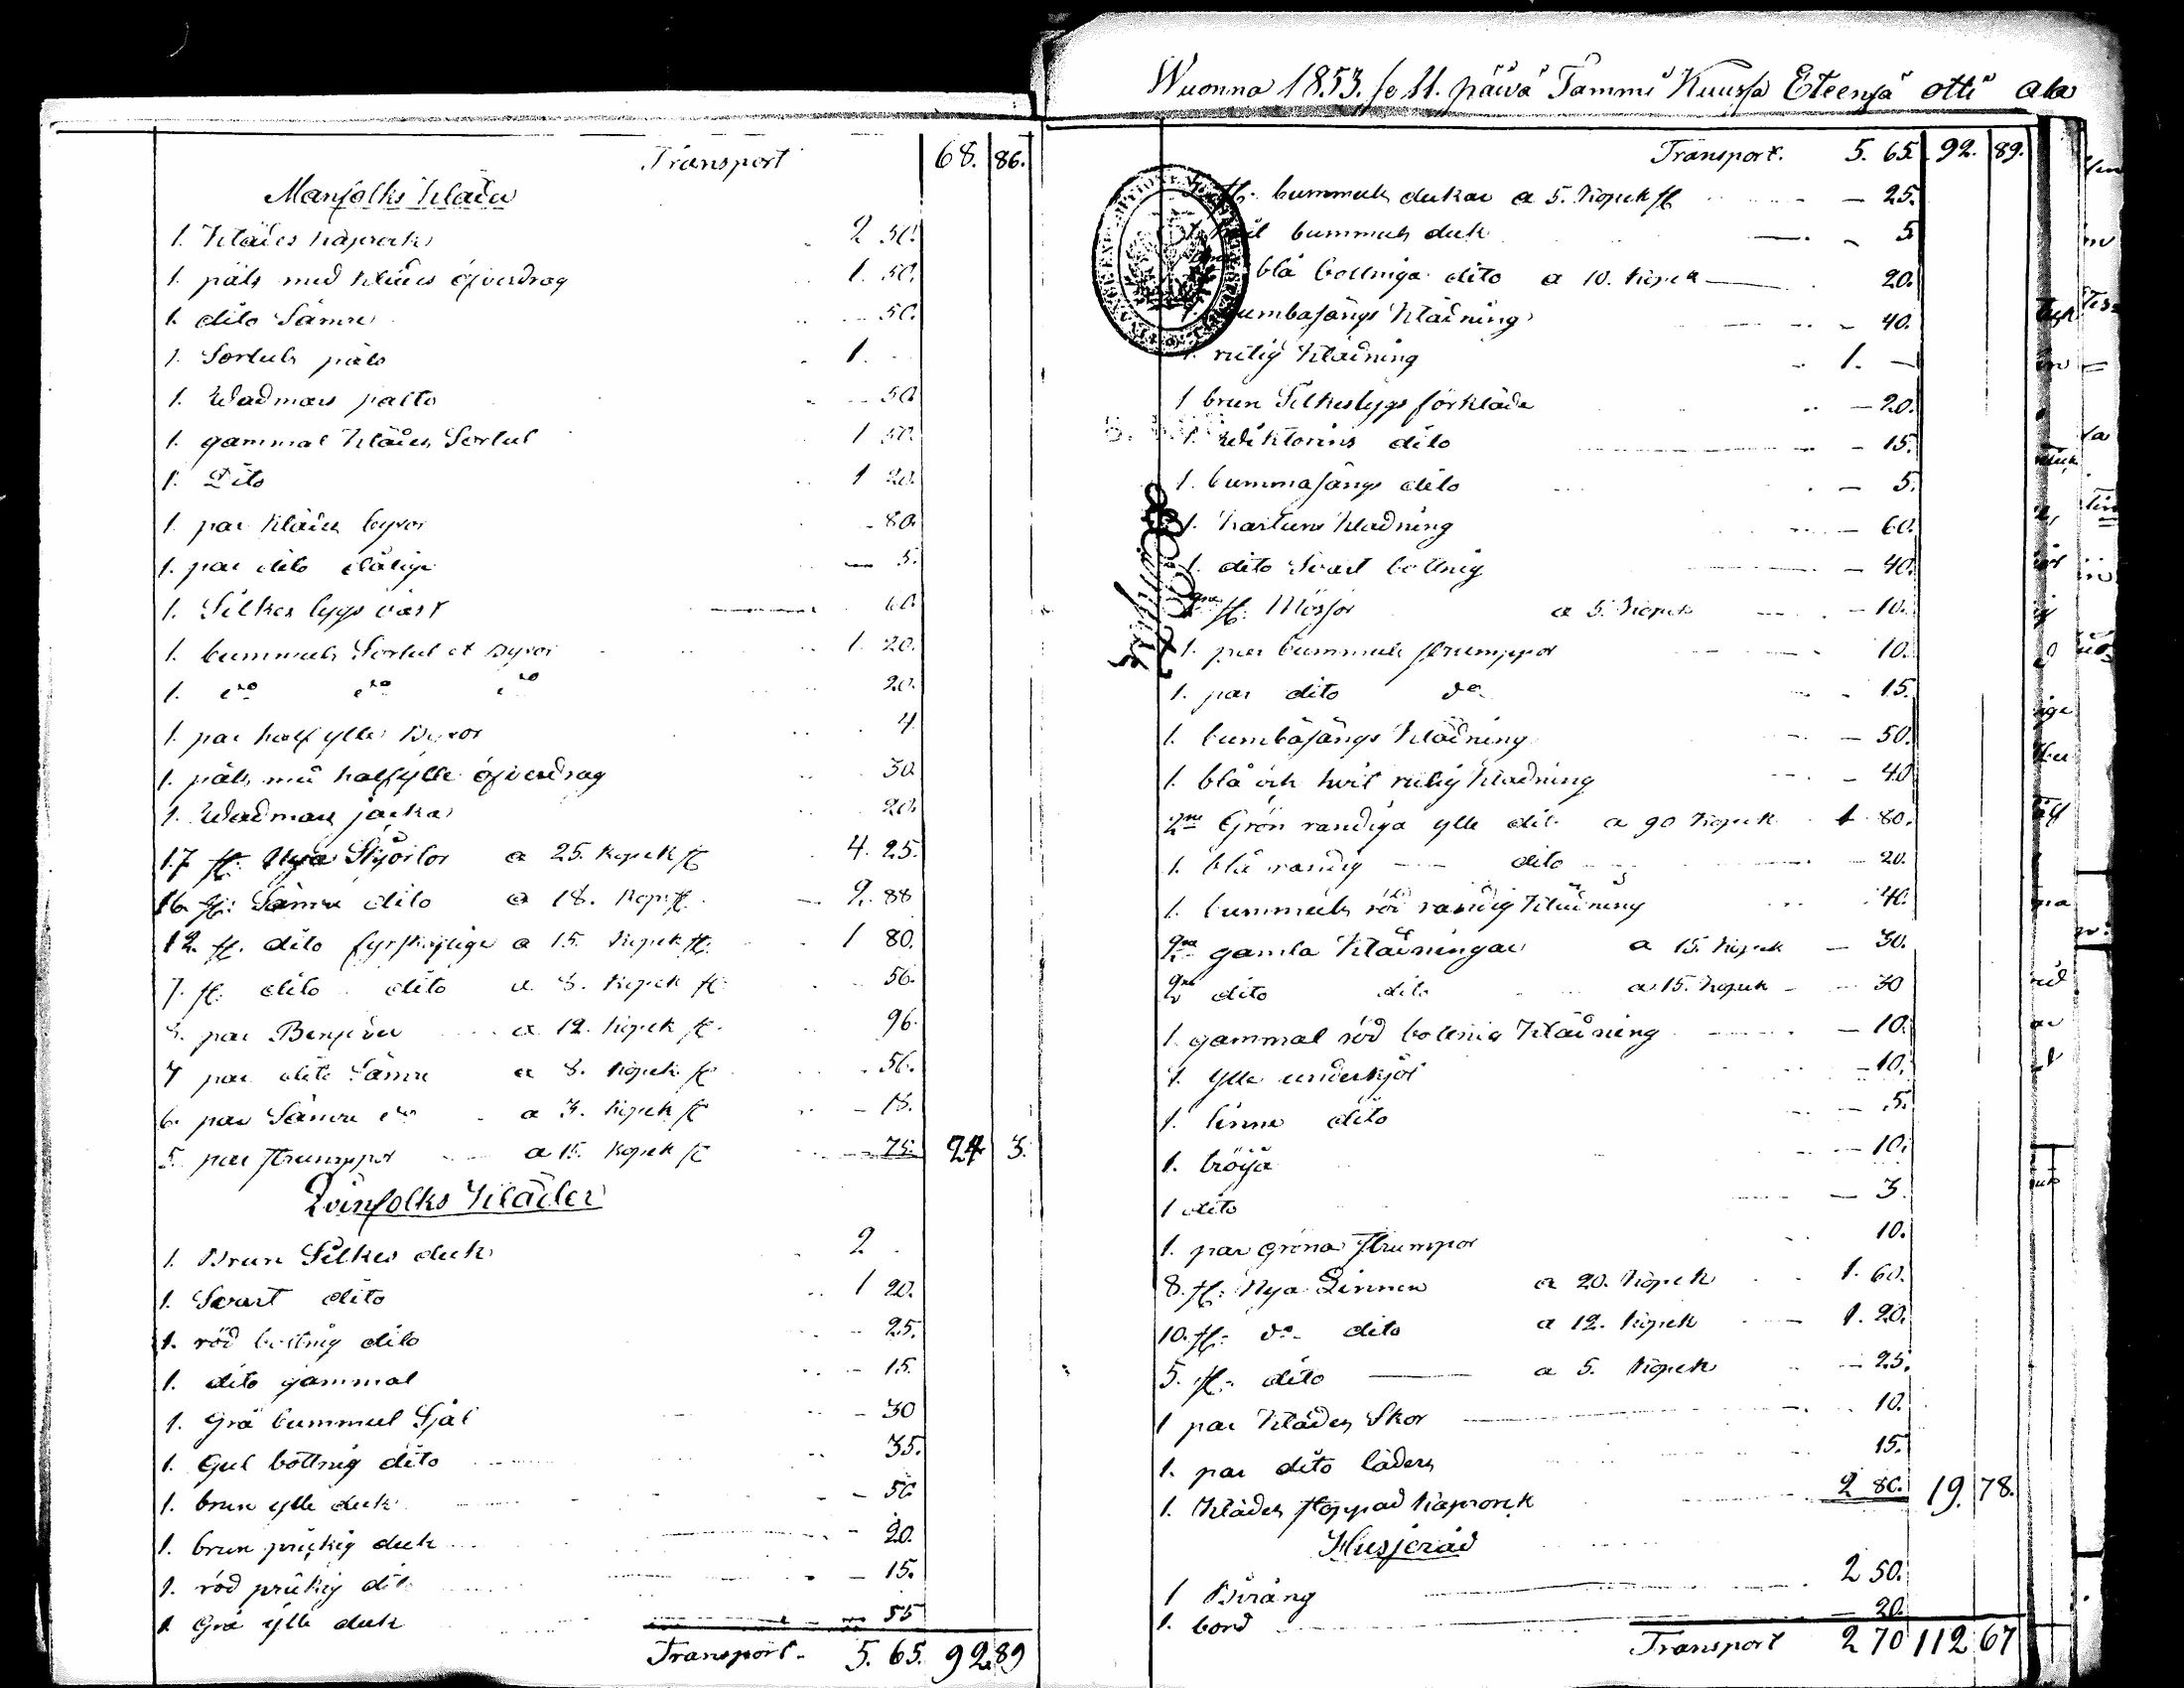 Transport 68. 86.
Manfolks Kläder
1. Klädes kaprock 2 50.
1. päls med klädes öfverdrag 1. 50.
1. dito Sämre 50.
1. Sortuks päls 1.
1. Wadmars paltto 50
1. gammal Klädes Sortut 1 50.
1. Dito 1 20.
1. par Klädes byxor 80.
1. par dito dålige 5.
1. Silkes tygs väst 60
1. bummuls Sortut et Byxor 1. 20.
1. do do do 20.
1. par half ylle Byxor 4
1. päls med halfylle öfverdrag 30
1. Wadmars jacka 20.
17 st. Nya Skjortor a 25. Kopek st 4. 25.
16. st: Sämre dito a 18. Kop: st. 2. 88
12. st. dito fyrskaftige a 15. Kopek st. 1 80.
7. st: dito dito a 8. Kopek st 56.
8. par Benkläder a 12. Kopek st. 96.
7 par dito Sämre a 8. Kopek st 56.
6. par Sämre do a 3. Kopek st 18.
5. par strumppor a 15. Kopek st 75. 24 3.
Qvinfolks Kläder
1. Brun Silkes duk 2
1. Svart dito 1 20.
1. röd bottnig dito 25.
1. dito gammal 15.
1. Grå bummul Sjal 30
1. Gul bottnig dito 35.
1. brun ylle duk 50
1. brun prickig duk 20.
1. röd prickig dito 15.
1. Grå ylle duk 55
Transport. 5. 65. 92. 89
Wuonna 1853. se 11. päivä Tammi Kuussa Eteensä otti ala
Transport. 5. 65. 92. 89.
st. bummuls dukar a 5. Kopek st 25.
1. hvit bummuls duk 5
blå bottniga dito a 10. Kopek 20.
1. bumbasängs Klädning 40.
1. rutig Klädning 1.
1 brun Silkestygs förkläde 20.
1. Wiktorins dito 15.
1. bummasängs dito 5.
1. kartuns Kladning 60.
1. dito Svart bottnig 40.
2ne st. Mössor a 5. Kopek 10.
1. par bummuls strumppor 10.
1. par dito do 15.
1. bumbasängs Klädning 50.
1. blå och hvit rutig Kladning 40
2ne Grön randiga ylle dito a 90 Kopek 1 80.
1. blå randig dito 20.
1. bummuls röd randig Klädning 40.
2ne gamla Klädningar a 15. Kopek 30.
2ne dito dito a 15. Kopek 30
1. gammal röd bottnig Klädning 10.
1. Ylle underkjol 10.
1. linne dito 5.
1. tröija 10.
1 dito 3.
1. par gröna strumpor 10.
8. st. Nya Linnen a 20. Kopek 1. 60.
10. st. do dito a 12. Kopek 1. 20.
5. st. dito a 5. Kopek 25.
1 par Klädes Skor 10.
1. par dito läders 15.
1. Klädes stoppad Kaprock 2 80. 19. 78.
Husjeråd
1 Sväng 2 50.
1. bord 20.
Transport 2 70 112 67